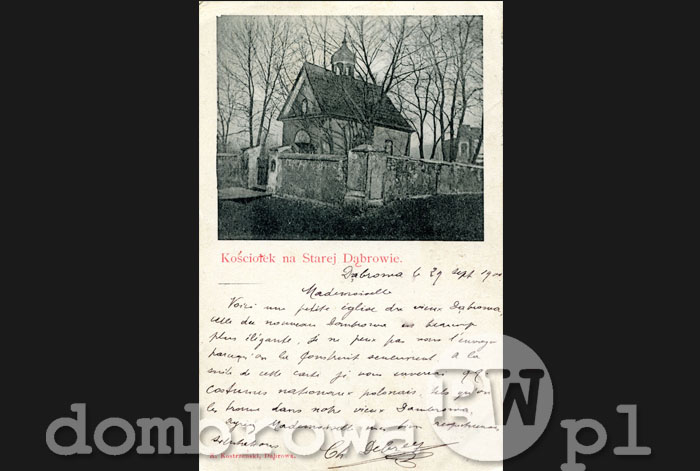 Kościołek na Starej Dąbrowie.
Dąbrowa 29 Sept 190
Mademoiselle
Voici une petite église du vieux Dąbrowa,
celle du nouveau Dombrowa est beaucoup
plus élégante, je ne peux pas vous l'envoyer
parcequ'on la construit seulement. à la
suite de cette carte je vous enverrai
costumes nationaux polonais, tels qu'on
les trouve dans notre vieux Dombrowa,
Mademoiselle mes bien respectueuses
salutations
Ch
A. Kostrzenski, Dąbrowa.
dombrow
W
pl